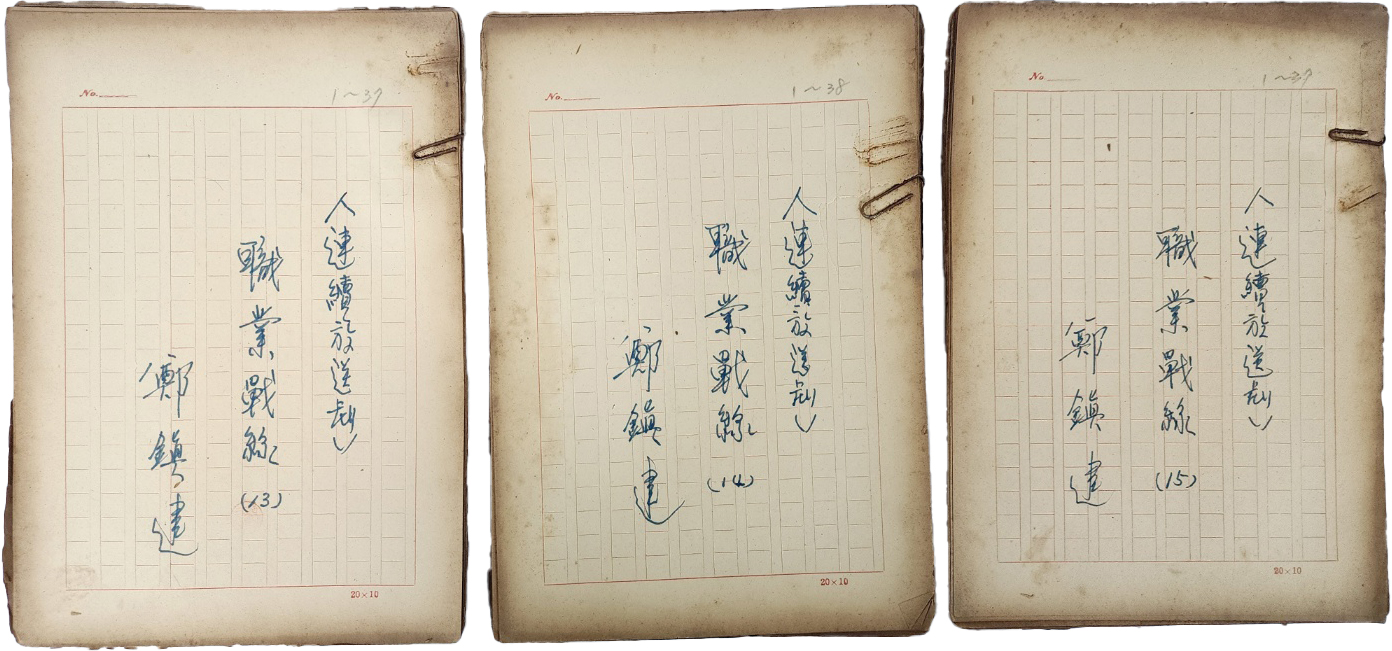 No.
1~37
〈連續放送劇〉
職業戰線 (13)
鄭鎭建
20×10
No.
1~38
〈連續放送劇〉
職業戰線 (14)
鄭鎭建
20×10
No.
1~37
〈連續放送劇〉
職業戰線 (15)
鄭鎭建
20×10